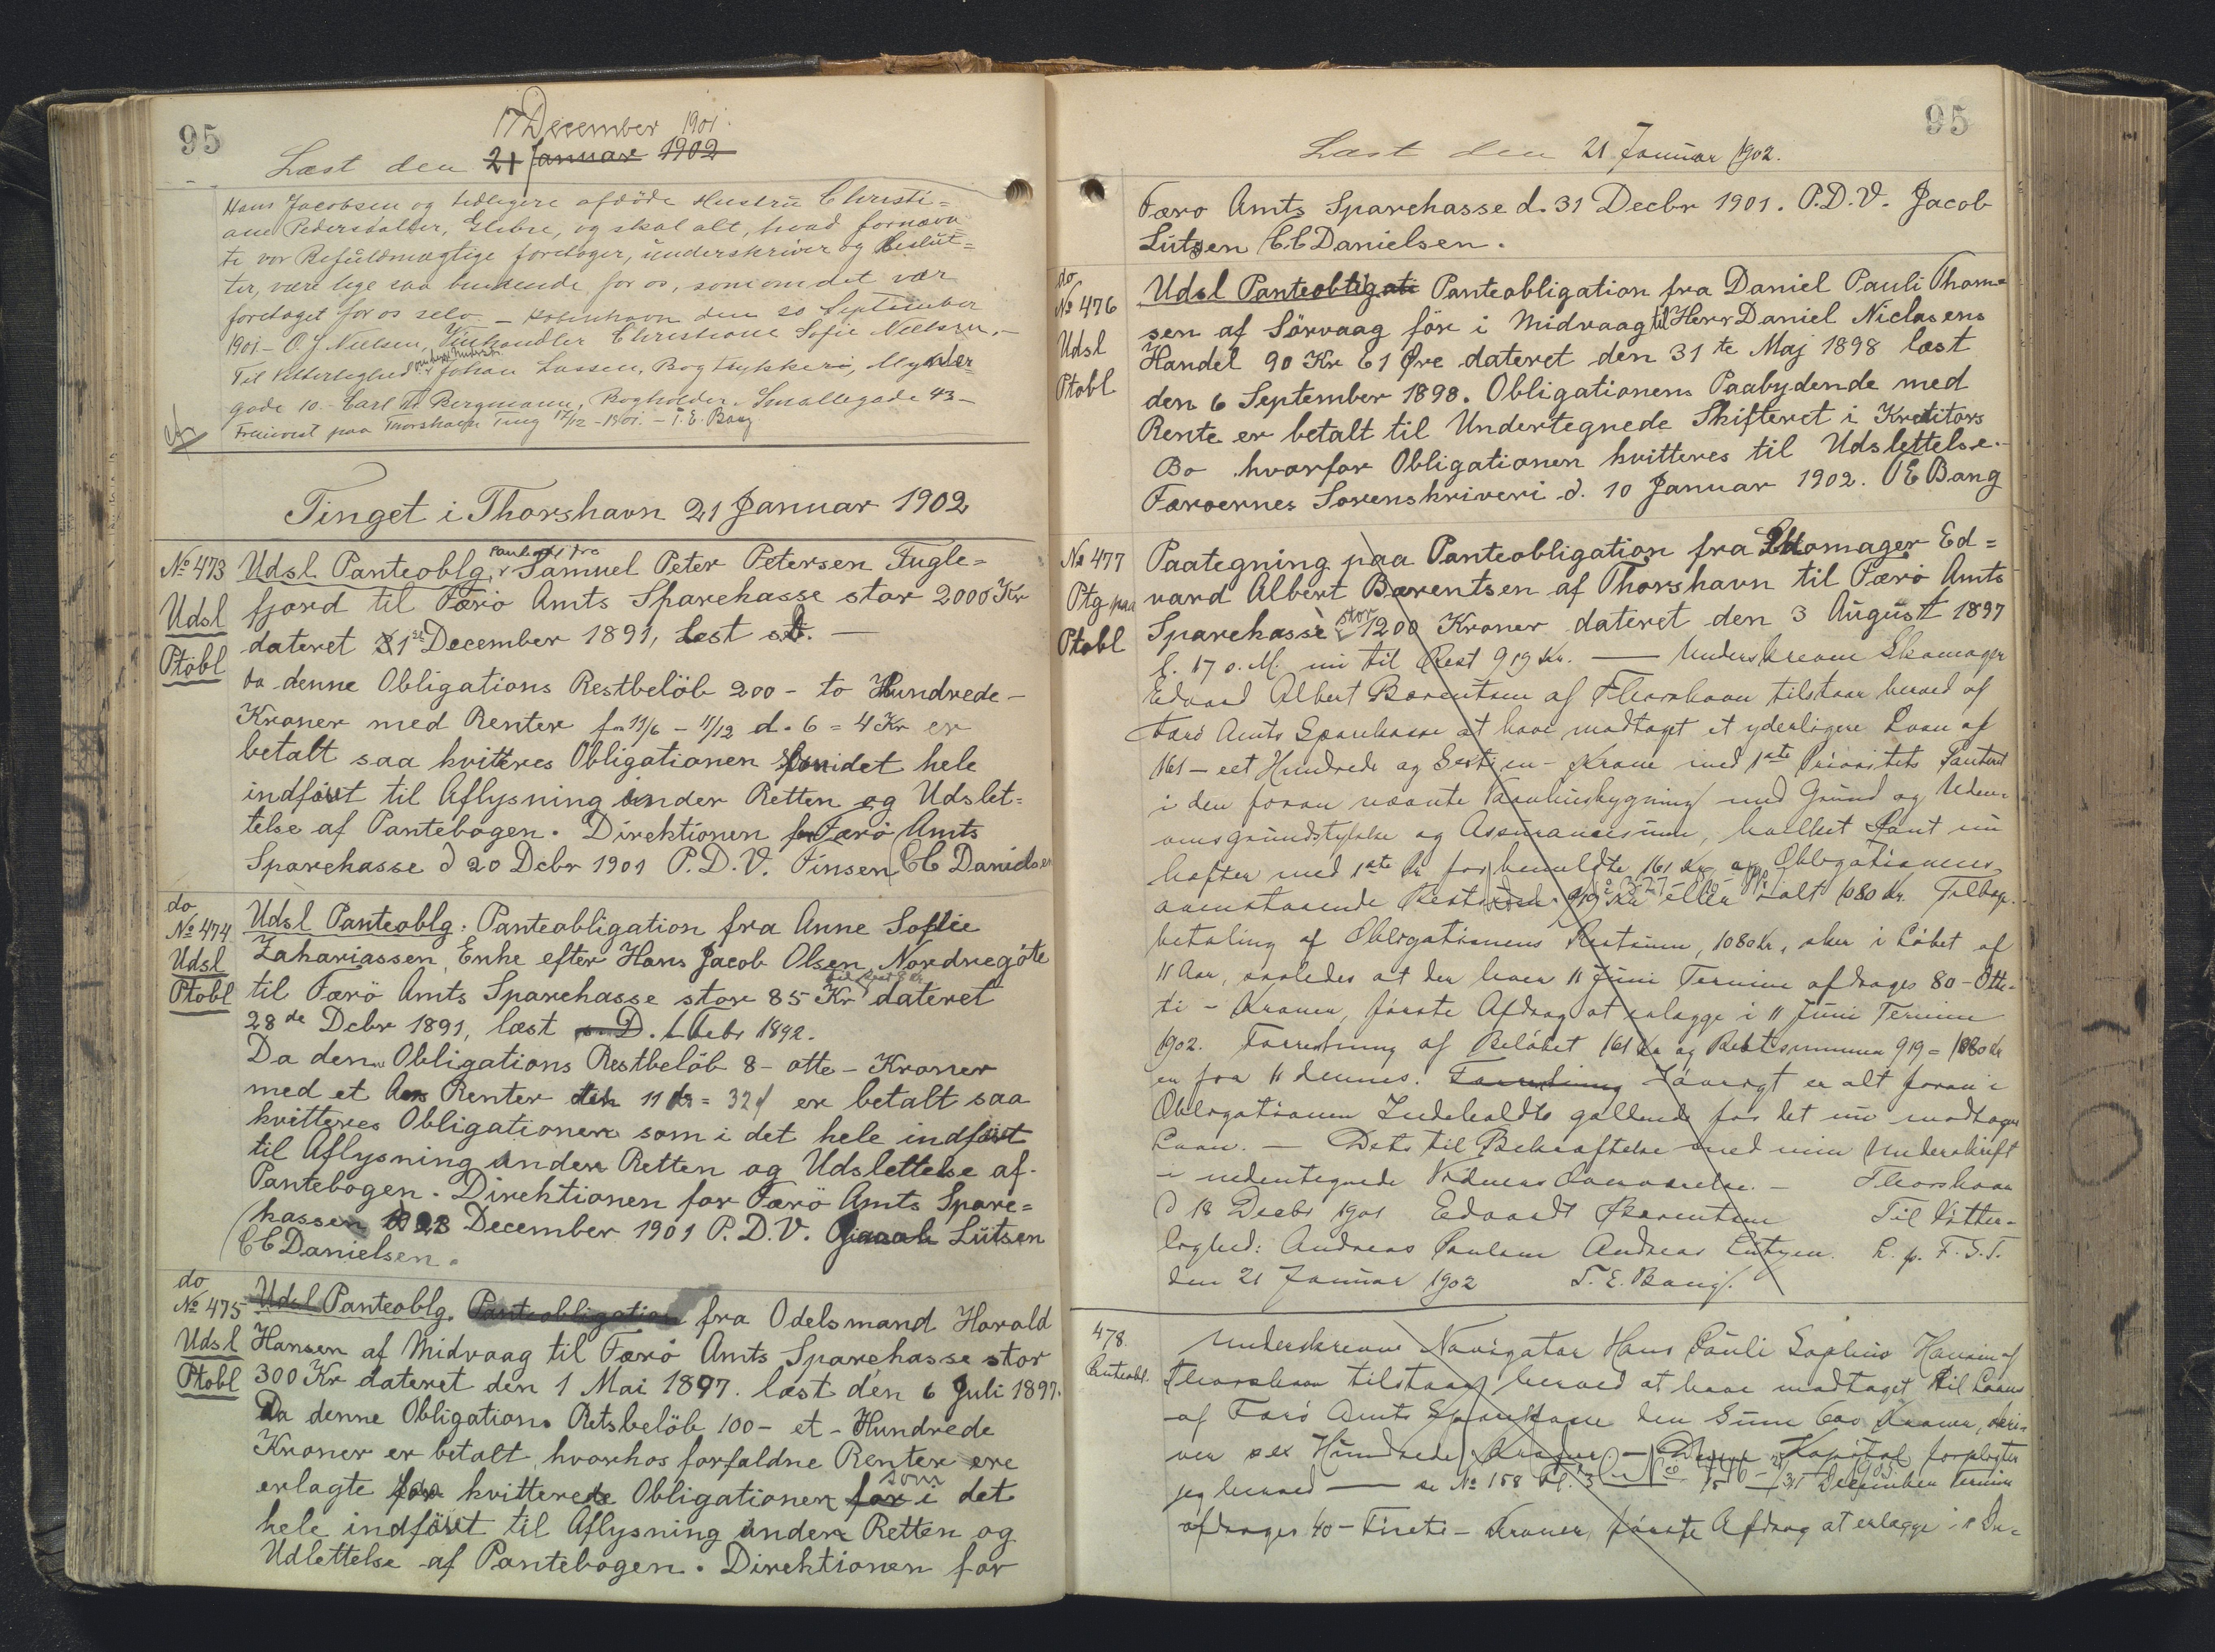 95
17 December 1901.
Læst den 21 Januar 1902
Hans Jacobsen og tidligere afdöde Hustru Christi=
ane Pedersdatter, Glibre, og skal alt, hvad fornævn
te vor Befuldmægtige foretager, underskriver og beslut=
ter, være lige saa bindende for os, som om det var
foretaget for os selv. - Kobenhavn den 20 September
1901 - O. J. Nielsen, Vinhandler Christiane Sofie Nielsen. -
Til Vitterlighed Johan Lassen, Bogtrykkeri, Mynter=
gade 10. Carl Bergmann, Bogholder, Smallegade 43 -
Fremvist paa Thorshavn Ting 17/12 - 1901. - T. E. Bang
Tinget i Thorshavn 21 Januar 1902
No 473 Udsl Panteoblg. Samuel Peter Petersen Fugle=
Udsl fjord til Færö Amts Sparekasse stor 2000 Kr
Ptobl dateret 31 December 1891, Læst s.D. —
da denne Obligations Restbelöb 200 - to Hundrede -
Kroner med Renter fra 11/6 - 11/12 d. 6 = 4 Kr er
betalt saa kvitteres Obligationen som i det hele
indfört til Aflysning inden Retten og Udslet=
telse af Pantebogen. Direktionen for Færö Amts
Sparekasse d 20 Dcbr 1901 P.D.V. Finsen / C C Danielsen
do
No 474 Udsl Panteoblg: Panteobligation fra Anne Sofie
Udsl Zakariassen, Enke efter Hans Jacob Olsen, Nordregöte
Ptobl til Færö Amts Sparekasse stor 85 Kr dateret
28de Dcbr 1891, læst s. D. 1 Febr 1892.
Da denne Obligations Restbelöb 8 - otte - Kroner
med et Aars Renter 11 ds = 32 er betalt saa
kvitteres Obligationen som i det hele indfört
til Aflysning inden Retten og Udslettelse af
Pantebogen. Direktionen for Færö Amts Spare=
kassen d 23 December 1901 P.D.V. Jacob Lützen
/ C C Danielsen.
do
No 475 Udsl Panteoblg. Panteobligation fra Odelsmand Harald
Udsl Hansen af Midvaag til Færö Amts Sparekasse stor
Ptobl 300 Kr dateret den 1 Mai 1897. læst den 6 Juli 1897.
Da denne Obligations Retsbelöb 100 - et - Hundrede
Kroner er betalt, hvorhos forfaldne Renter ere
som
erlagte kvitterede Obligationen for i det
hele indfört til Aflysning inden Retten og
Udlettelse af Pantebogen. Direktionen for
95
Læst den 21 Januar 1902.
Færo Amts Sparekasse d. 31 Decbr 1901. P.D.V. Jacob
Lützen / C C Danielsen.
do
No 476 Udsl Panteobligati Panteobligation fra Daniel Pauli Thom=
sen af Sörvaag för i Midvaag til Herr Daniel Niclasens
Udsl Handel 90 Kr 61 Øre dateret den 31te Maj 1898 læst
Ptobl den 6 September 1898. Obligationens Paabydende med
Rente er betalt til Undertegnede Skifteret i Kreditors
Bo hvorfor Obligationen kvitteres til Udslettelse.
Færoernes Sorenskriveri d. 10 Januar 1902. T E Bang
No 477 Paategning paa Panteobligation fra Skomager Ed=
Ptg paa vard Albert Barentsen af Thorshavn til Færö Amts
Ptobl Sparekasse stor 1200 Kroner dateret den 3 August 1897
l. 17 s. M. nu til Rest 919 Kr. — Underskrevne Skomager
Edvard Albert Barentsen af Thorshavn tilstaar herved af
Færö Amts Sparekasse at have modtaget et yderligere Laan af
161 - eet Hundrede og Sextien - Krone med 1ste Prioritets Panteret
i den foran nævnte Vaaninsbygning med Grund og Uden-
omsgrundstykke og Assurancesum, hvilket Pant nu
hæfter med 1ste Pr for bemeldte 161 Kr og Obligationens
ovenstaaende Restsum 919 Kr eller ialt 1080 Kr. Tilbage-
betaling af Obligationens Restsum, 1080 Kr, sker i Löbet af
11 Aar, saaledes at der hver 11 Juni Termin afdrages 80 - Otte-
ti - Kroner, förste Afdrag at erlægge i 11 Juni Termin
1902. Forrentning af Belöbet 161 Kr og Restsummen 919 = 1080 Kr
er fra 11 dennes. Forrentning Iövrigt er alt foran i
Obligationen Indeholdte gældende for det nu modtagne
Laan. — Dets til Bekræftelse med min Underskrift
i nedentegnede Vidners Overværelse. — Thorshavn
d 18 Decbr 1901 Edvardt Barentsen Til Vitter-
lighed: Andreas Poulsen Andreas Lützen. L. p. F. S. T.
den 21 Januar 1902 T. E. Bang.
478. Underskrevne Navigatør Hans Pauli Sophus Hansen af
Panteobl. Thorshavn tilstaar herved at have modtaget til Laans
af Færö Amts Sparekasse den Sum 600 Kroner, skri-
ver sex Hundrede Kroner — Denne Kapital forpligter
jeg herved — se No 158 31 December Termin
afdrages 40 - Fireti - Kroner, förste Afdrag at erlægge i 11 De=